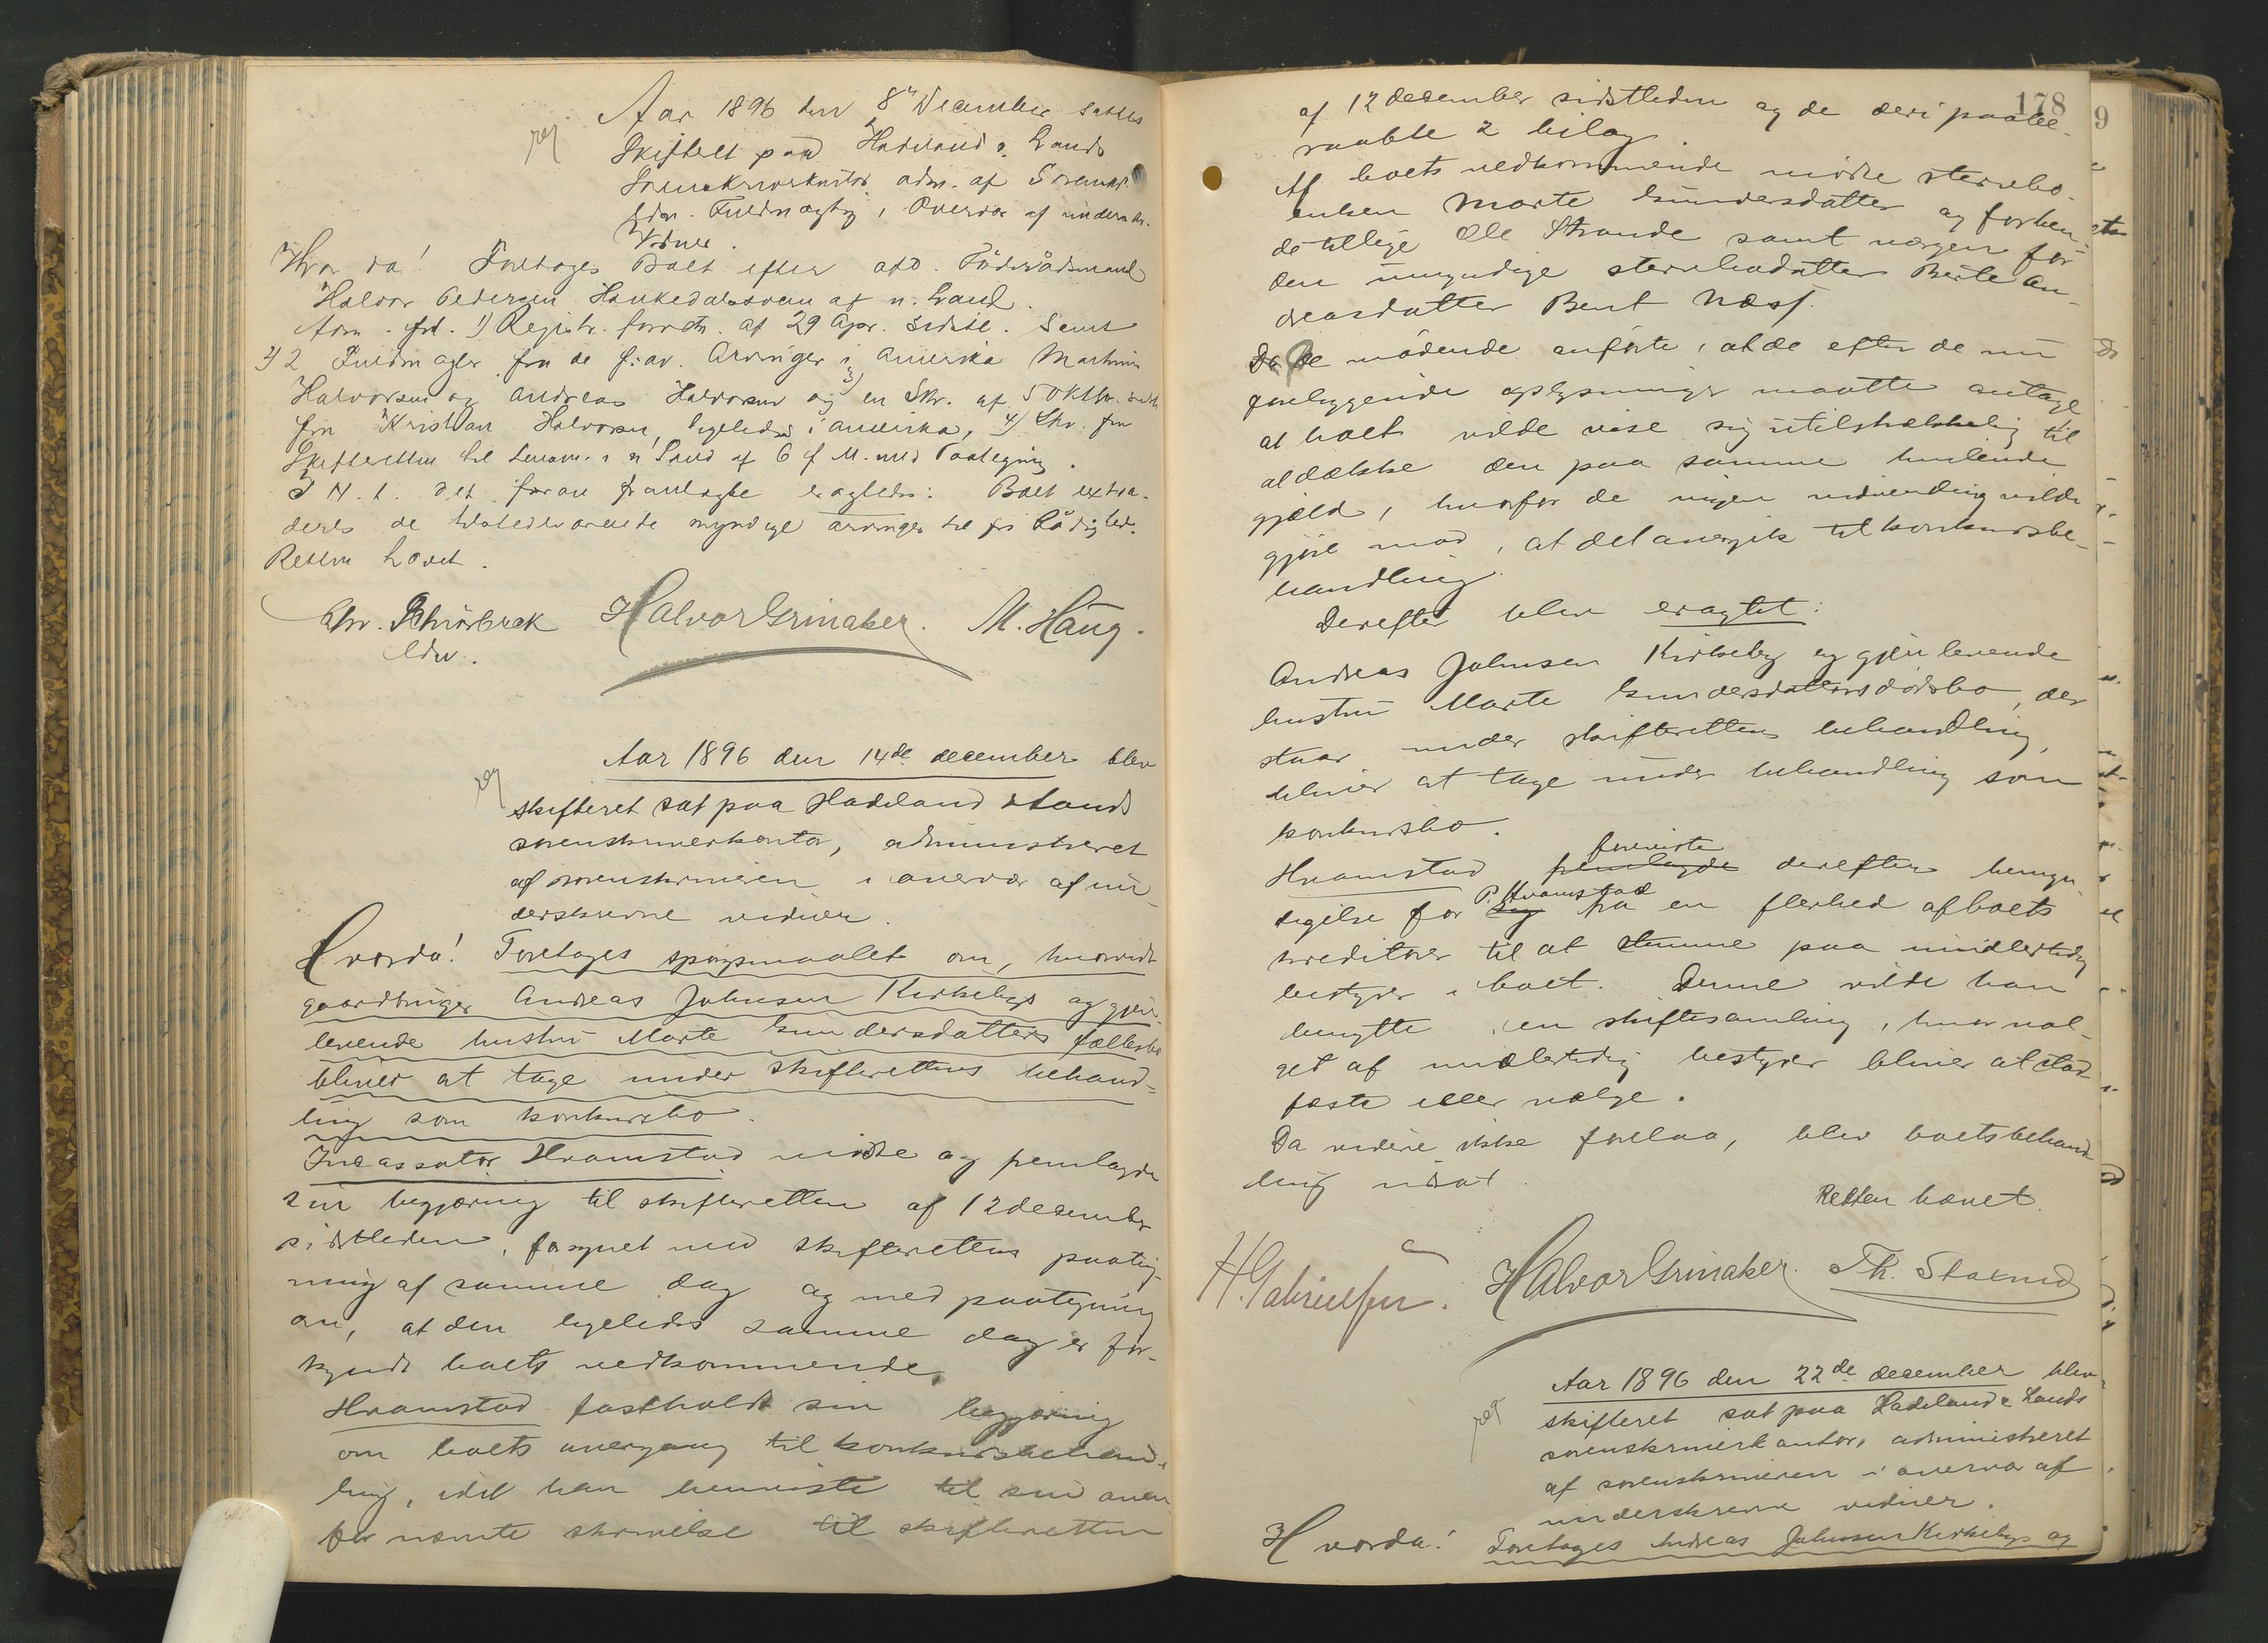 reg
Aar 1896 den 8de December sattes
Skifteret paa Hadeland & Lands
Sorenskriverkontor adm. af Sorenskr.
Edsv. Fuldmægtig i Overvær af underskr.
Vidner.
Hvorda! Foretages Boet efter afd. Föderådsmand
Halvor Pedersen Haukedalsveen af n. Land.
Adm. frl. 1) Registr. forretn. af 29 Apr. sidstl. samt
2) 2 Fuldmagter fra de f: av. Arvinger i Amerika Martin
Halvorsen og Andreas Halvorsen og 3) en Skr. af 5 Oktbr. sidstl.
fra Kristian Halvorsen, ligeledes i Amerika, 4) Skr. fra
Skifteretten til Lensm. i n Land af 6 f. M. med Paategning.
I H. t. det foran fremlagte eragtedes: Boet extra-
deres de tilstedeværende myndige arvinger til fri Rådighed.
Retten hævet.
Chr. Schiörbeck Halvor Grinaker. M. Haug.
Edsv.
reg
Aar 1896 den 14de december blev
skifteret sat paa Hadeland & Lands
sorenskriverkontor, administreret
af sorenskriveren i overvær af un-
derskrevne vidner.
Hvorda! Foretages spørgsmaalet om, hvorvidt
gaardbruger Andreas Johnsen Kirkebys og gjen-
levende hustru Marte Gundersdatters fællesbo
bliver at tage under skifterettens behand-
ling som konkursbo.
Incassator Hvamstad mødte og fremlagde
sin begjæring til skifteretten af 12 desember
sidstleden, forsynet med skifterettens paateg-
ning af samme dag og med paategning
om, at den ligeledes samme dag er for-
kyndt boets vedkommende.
Hvamstad fastholdt sin begjæring
om boets overgang til konkursbehand-
ling, idet han henviste til sin oven
for nævnte skrivelse til skifteretten
178
af 12 desember sidstleden og de deri paabe-
raabte 2 bilag.
Af boets vedkommende mødte sterbbo-
enken Marte Gundersdatter og forhen-
de tillige Ole Strande samt værgen for
den umyndige sterbbodatter Berte An-
dreasdatter Bent Næss.
Da de mødende anførte, at de efter de nu
foreliggende oplysninger maatte antage
at boet vilde vise sig utilstrækkelig til
at dække den paa samme hvilende
gjæld, hvorfor de ingen indvending vilde
gjøre mod, at det overgik til konkursbe-
handling.
Derefter blev eragtet:
Andreas Johnsen Kirkeby og gjenlevende
hustru Marte Gundersdatters dødsbo, der
staar under skifterettens behandling,
bliver at tage under behandling som
konkursbo.
Hvamstad fremlagde foreviste derefter bemyn-
digelse for sig P. Hvamstad fra en flerhed af boets
kreditorer til at stemme paa midlertidig
bestyrer i boet. Denne vilde han
benytte i en skiftesamling, hvor val-
get af midlertidig bestyrer bliver at stad
fæste eller vælge.
Da videre ikke forelaa, blev boets behand
ling udsat.
Retten hævet.
H. Gabrielsen. Halvor Grinaker. Th. Staxrud
reg
Aar 1896 den 22de desember blev
skifteret sat paa Hadeland & Lands
sorenskriverkontor, administreret
af sorenskriveren i overvær af
underskrevne vidner.
Hvorda! Foretages Andreas Johnsen Kirkebys og